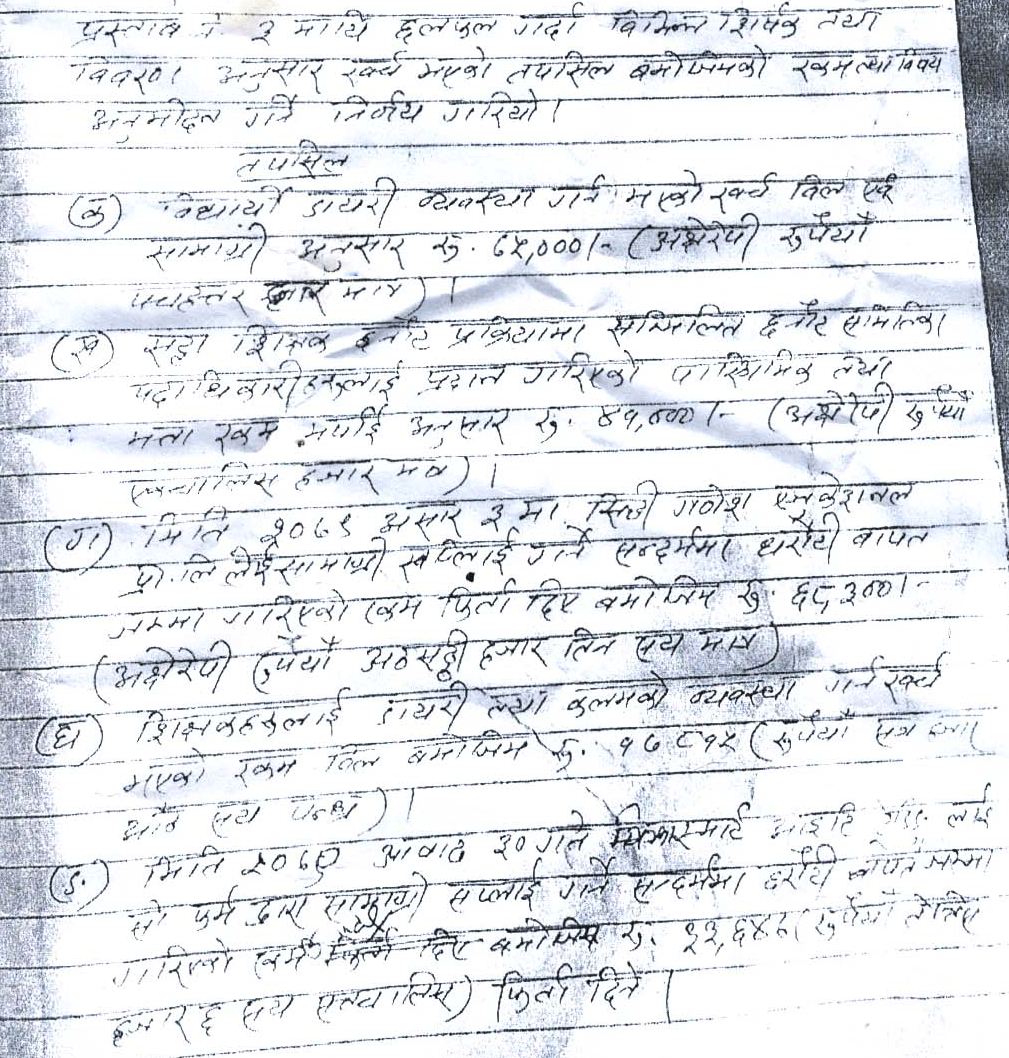 प्रस्ताव नं ३ माथि छलफल गर्दा विभिन्न शिर्षक तथा
विवरण अनुसार खर्च भएको तपसिल बमोजिमको रकम तथा विषय
अनुमोदन गर्ने निर्णय गरियो।
तपसिल
(क) विद्यार्थी डायरी व्यवस्था गर्न भएको खर्च विल एवं
सामाग्री अनुसार रु. ७५,०००।- (अक्षेरेपी रुपैयाँ
पचहत्तर हजार मात्र)।
(ख) सट्टा शिक्षक छनौट प्रक्रियामा सम्मिलित छनौट समितिका
पदाधिकारीहरुलाई प्रदान गरिएको पारिश्रमिक तथा
भत्ता रकम भर्पाई अनुसार रु. ४१,०००।- (अक्षेरेपी रुपैयाँ
एकचालिस हजार मात्र)।
(ग) मिति २०७९ असार ३ मा सिद्धी गणेश एजुकेशनल
प्रा.लि लाई सामाग्री सप्लाई गर्ने सन्दर्भमा धरौटी वापत
जम्मा गरिएको रकम फिर्ता दिए बमोजिम रु. ६८,३००।-
(अक्षेरेपी रुपैयाँ अठसठ्ठी हजार तिन सय मात्र)
(घ) शिक्षकहरुलाई डायरी तथा कलमको व्यवस्था गर्न खर्च
भएको रकम विल बमोजिम रु. १७८१५ (रुपैयाँ सत्र हजार
आठ सय पन्ध्र)।
(ङ) मिति २०७९ आषाढ ३० गते स्मार्ट आइटि लाई
सो फर्म द्वारा सामाग्री सप्लाई गर्ने सन्दर्भमा धरौटी वापत जम्मा
गरिएको रकम फिर्ता दिए बमोजिम रु. ३३,६४८ (रुपैयाँ तेत्तिस
हजार ६ सय) फिर्ता दिने।